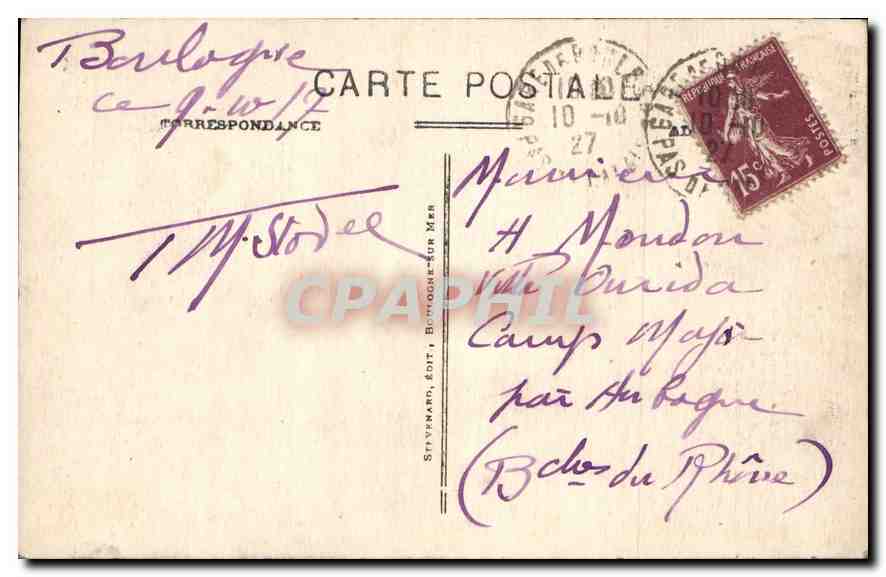 Boulogne
ce 9-10/27
CARTE POSTALE
CORRESPONDANCE
AD
GARE DE BOULO
10 -10
27
GARE DE
10 -10
27
PAS
RÉPUBLIQUE FRANÇAISE
POSTES
15c
M. Stodel
Monsieur
H Mondon
Villa Ourida
Camp Major
par Aubagne
(Bches du Rhône)
STEVENARD, ÉDIT., BOULOGNE-SUR-MER
CPAPHIL